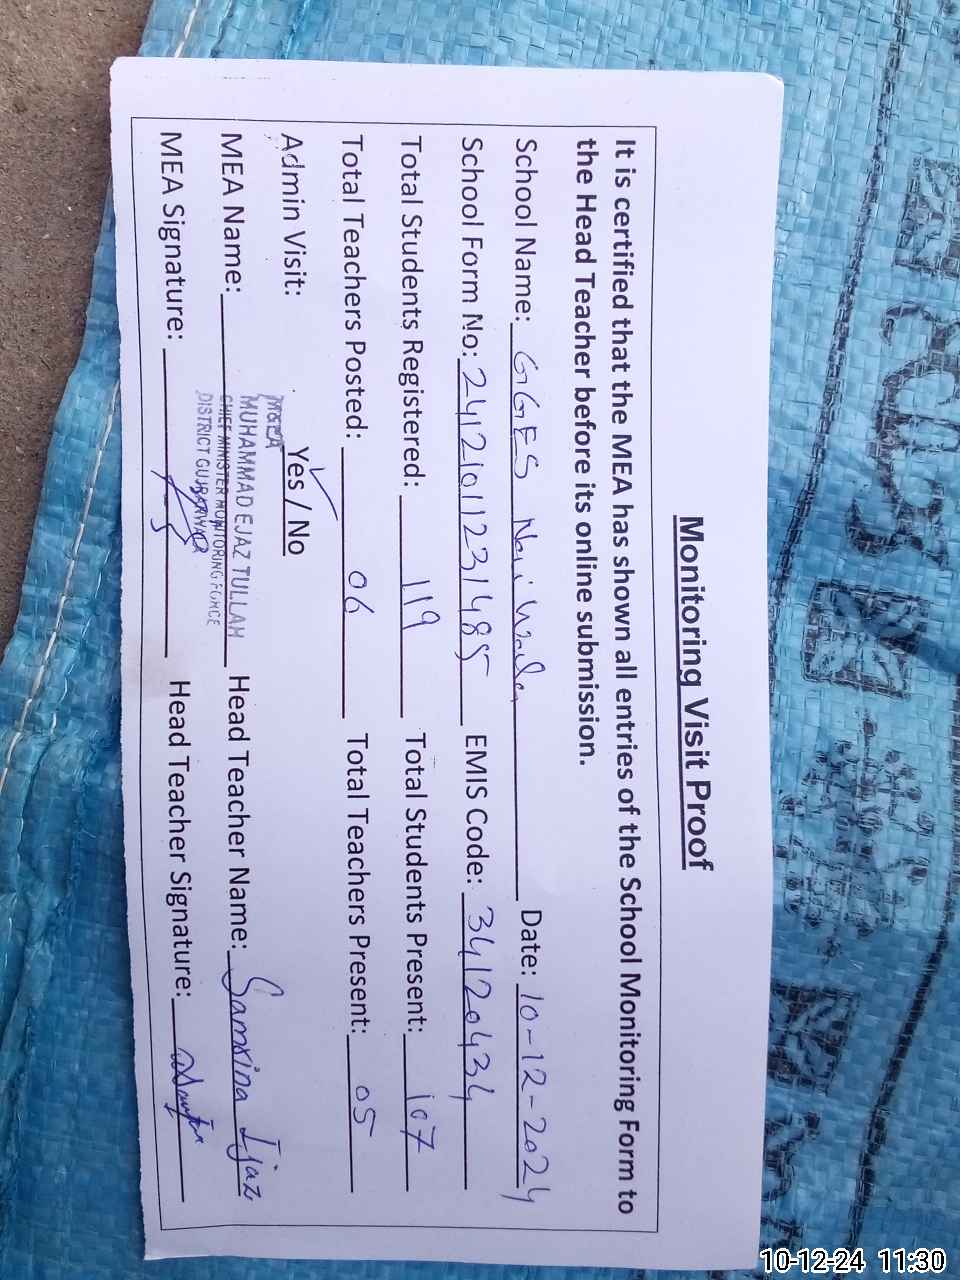 Monitoring Visit Proof
It is certified that the MEA has shown all entries of the School Monitoring Form to
the Head Teacher before its online submission.
School Name: GGES Date: 10-12-2024
School Form No: 24121011231485 EMIS Code: 34120434
Total Students Registered: 119 Total Students Present: 107
Total Teachers Posted: 06 Total Teachers Present: 05
Admin Visit: Yes / No
MEA Name: MUHAMMAD EJAZ TULLAH Head Teacher Name: Samina Ijaz
CHIEF MINISTER MONITORING FORCE
DISTRICT GUJRANWALA
MEA Signature: Head Teacher Signature:
10-12-24 11:30